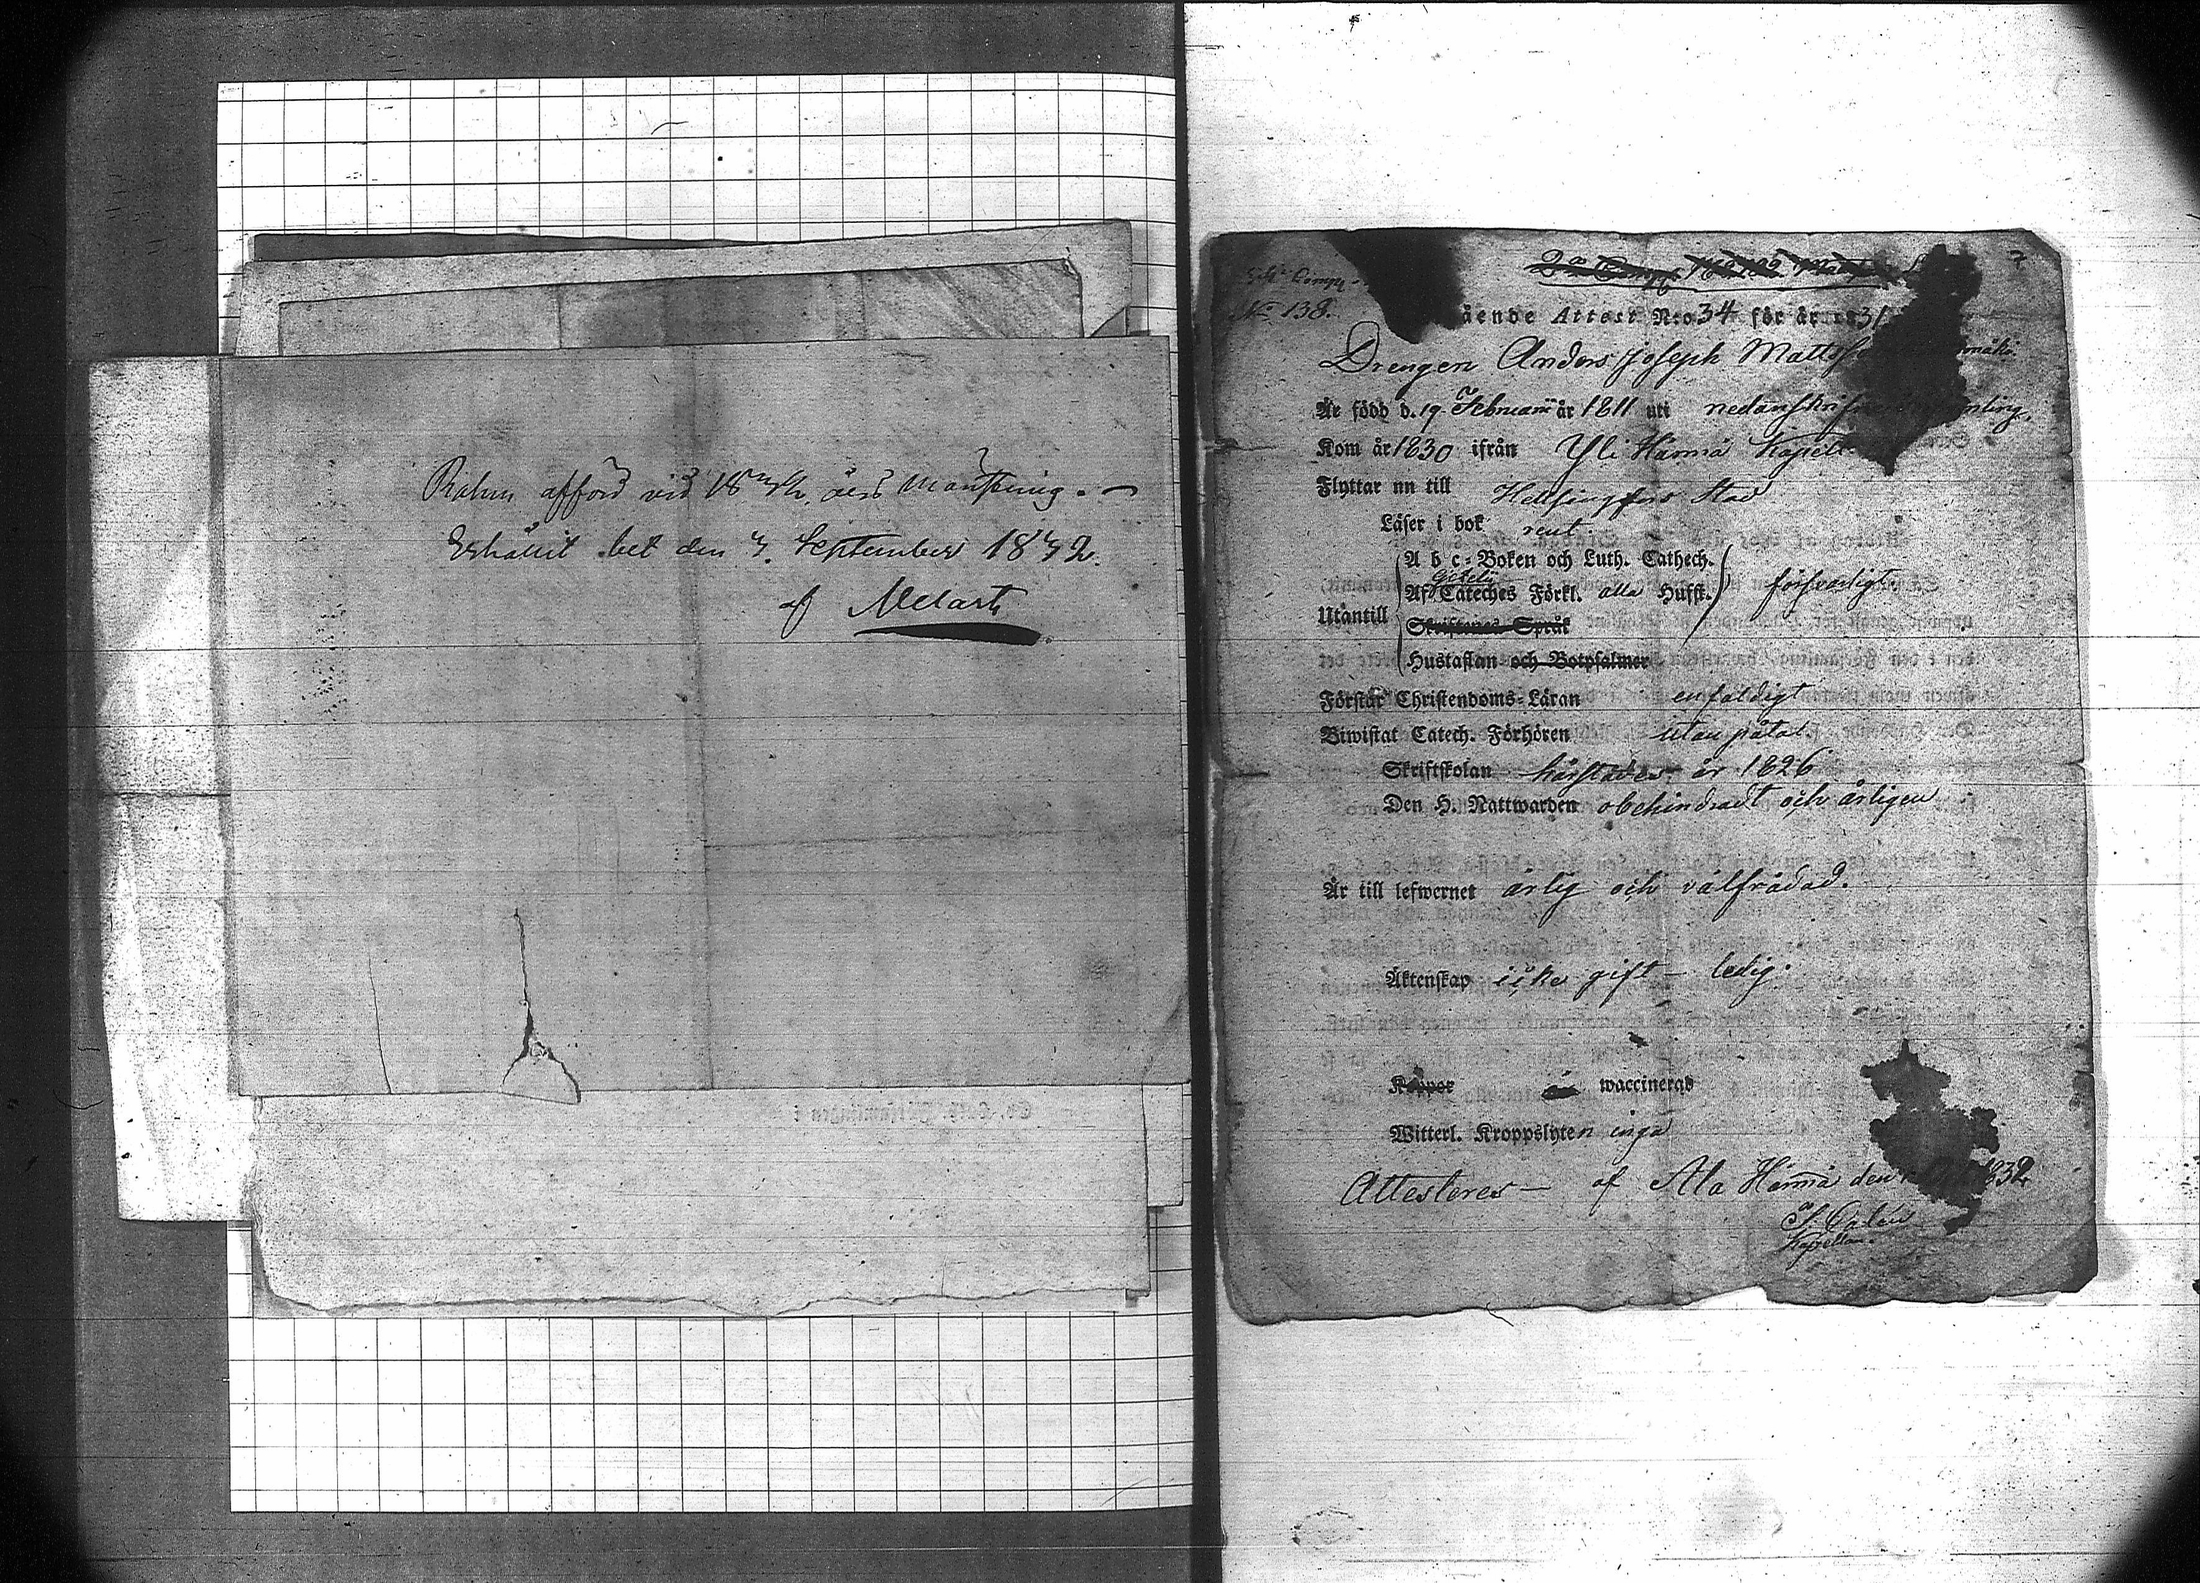 afförd vid 1832 års Mantskrifning.
Erhållit bet den 3 September 1832.
af Melart
No 138.
ående Attest N:o 34 för år 1831
Drengen Anders Joseph Matts
Är född d. 19 Februarii år 1811 uti nedanskrifne
Kom år 1830 ifrån Yli Härmä Kapell
Flyttar nu till Helsingfors Stad
Läser i bok rent
A b c-Boken och Luth. Cathech.
Af Cateches Förkl. alla Hufst. försvarligt
Utantill
Skriftenes Språk
Hustaflan och Botpsalmer
Förstår Christendoms-Läran enfaldigt
Biwistat Catech. Förhören utan påtal
Skriftskolan härstädes år 1826
Den H. Nattwarden obehindradt och årligen
Är till lefwernet ärlig och välfrädad.
Äktenskap icke gift – ledig.
Koppor waccinerad
Witterl. Kroppslyten inga
Attesteres – af Ala Härmä den 1832
Kapellan.